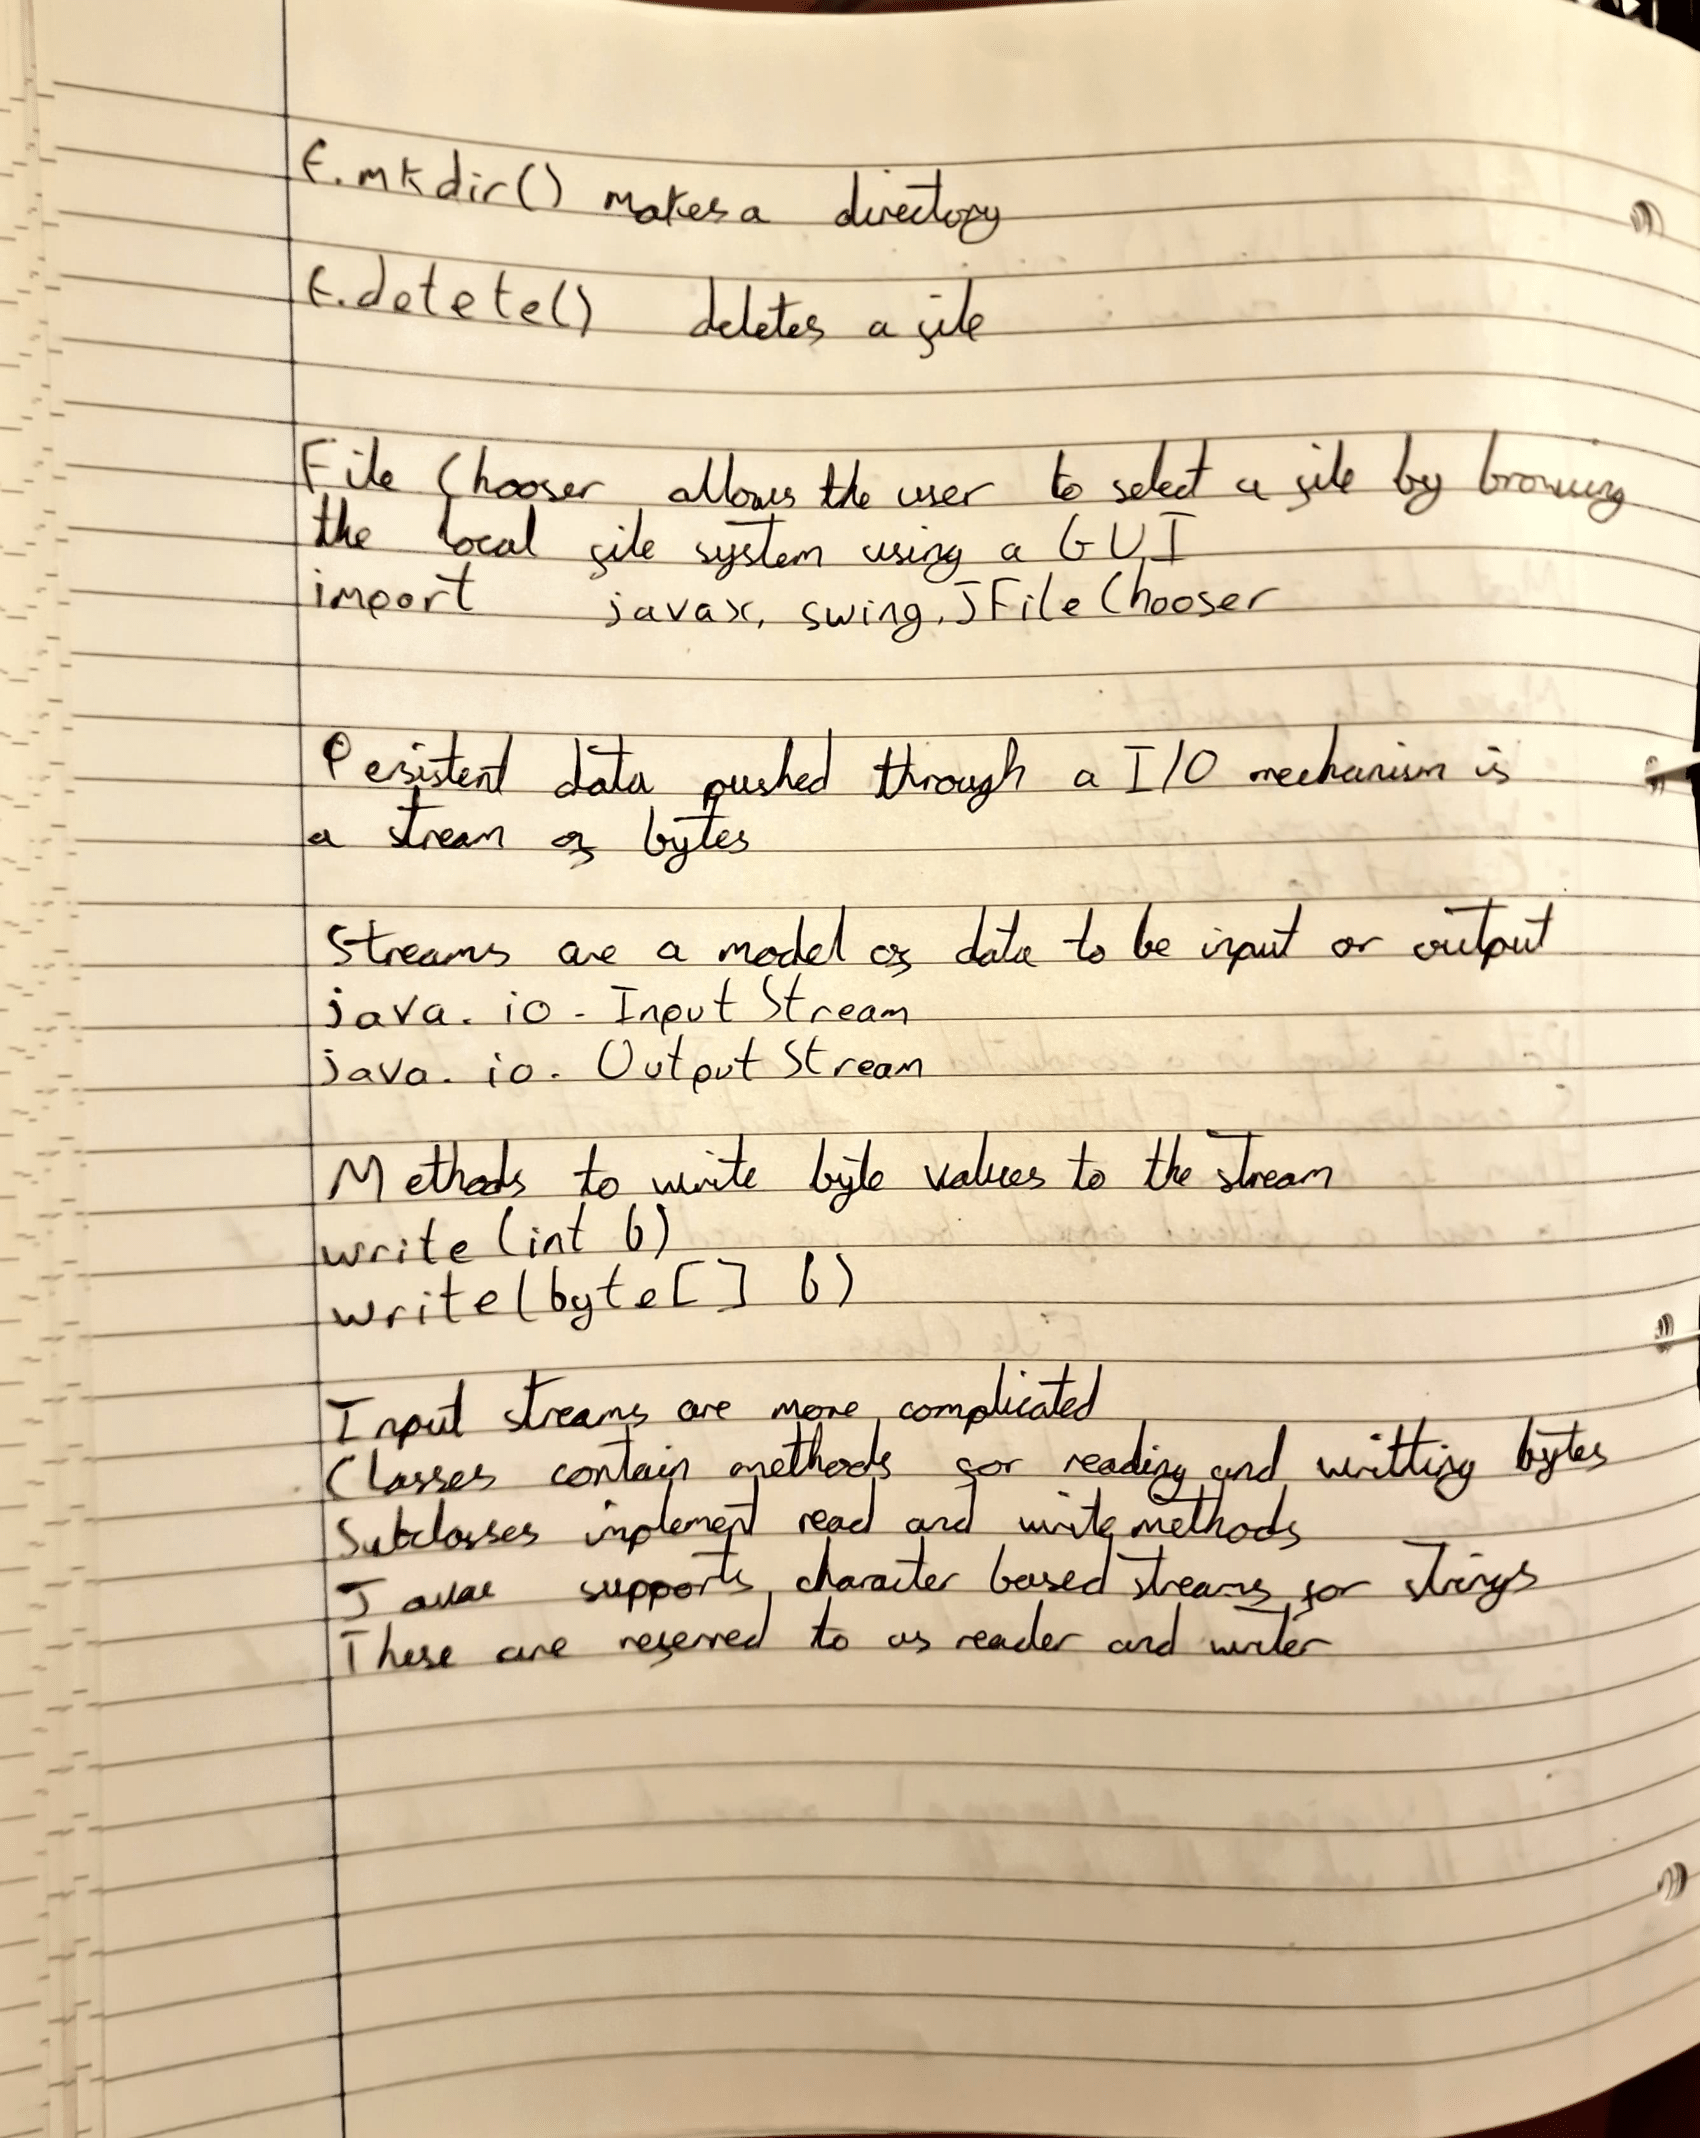 f.mkdir() makes a directory
f.delete() deletes a file
File Chooser allows the user to select a file by browsing
the local file system using a GUI
import javax.swing.JFileChooser
Pesistent data pushed through a I/O mechanism is
a stream of bytes
Streams are a model of data to be input or output
java.io.InputStream
java.io.OutputStream
Methods to write byte values to the stream
write(int b)
write(byte[] b)
Input streams are more complicated
Classes contain methods for reading and writting bytes
Subclasses implement read and write methods
Java supports character based streams for strings
These are referred to as reader and writer